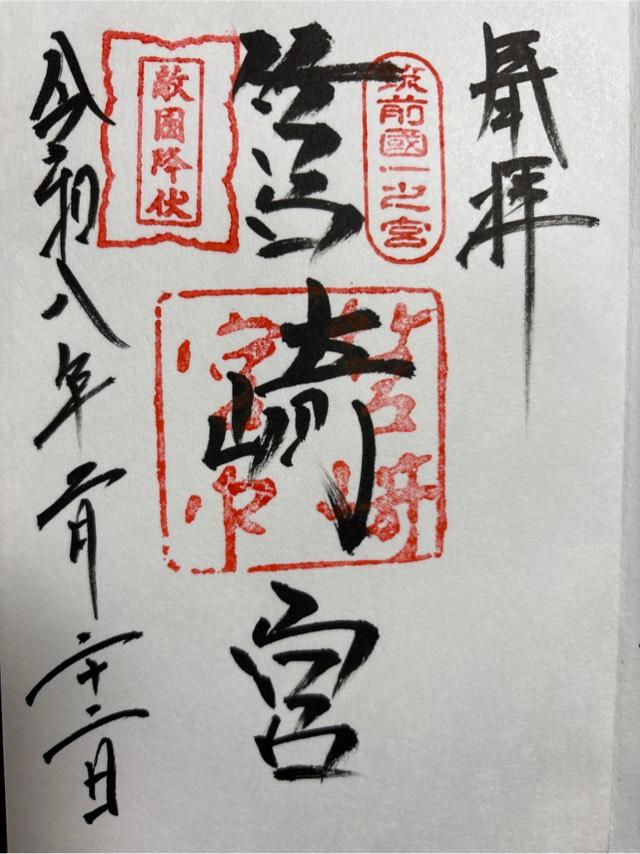 奉拝
筑前國一之宮
筥崎宮
筥崎宮印
敵國降伏
令和八年二月二十二日